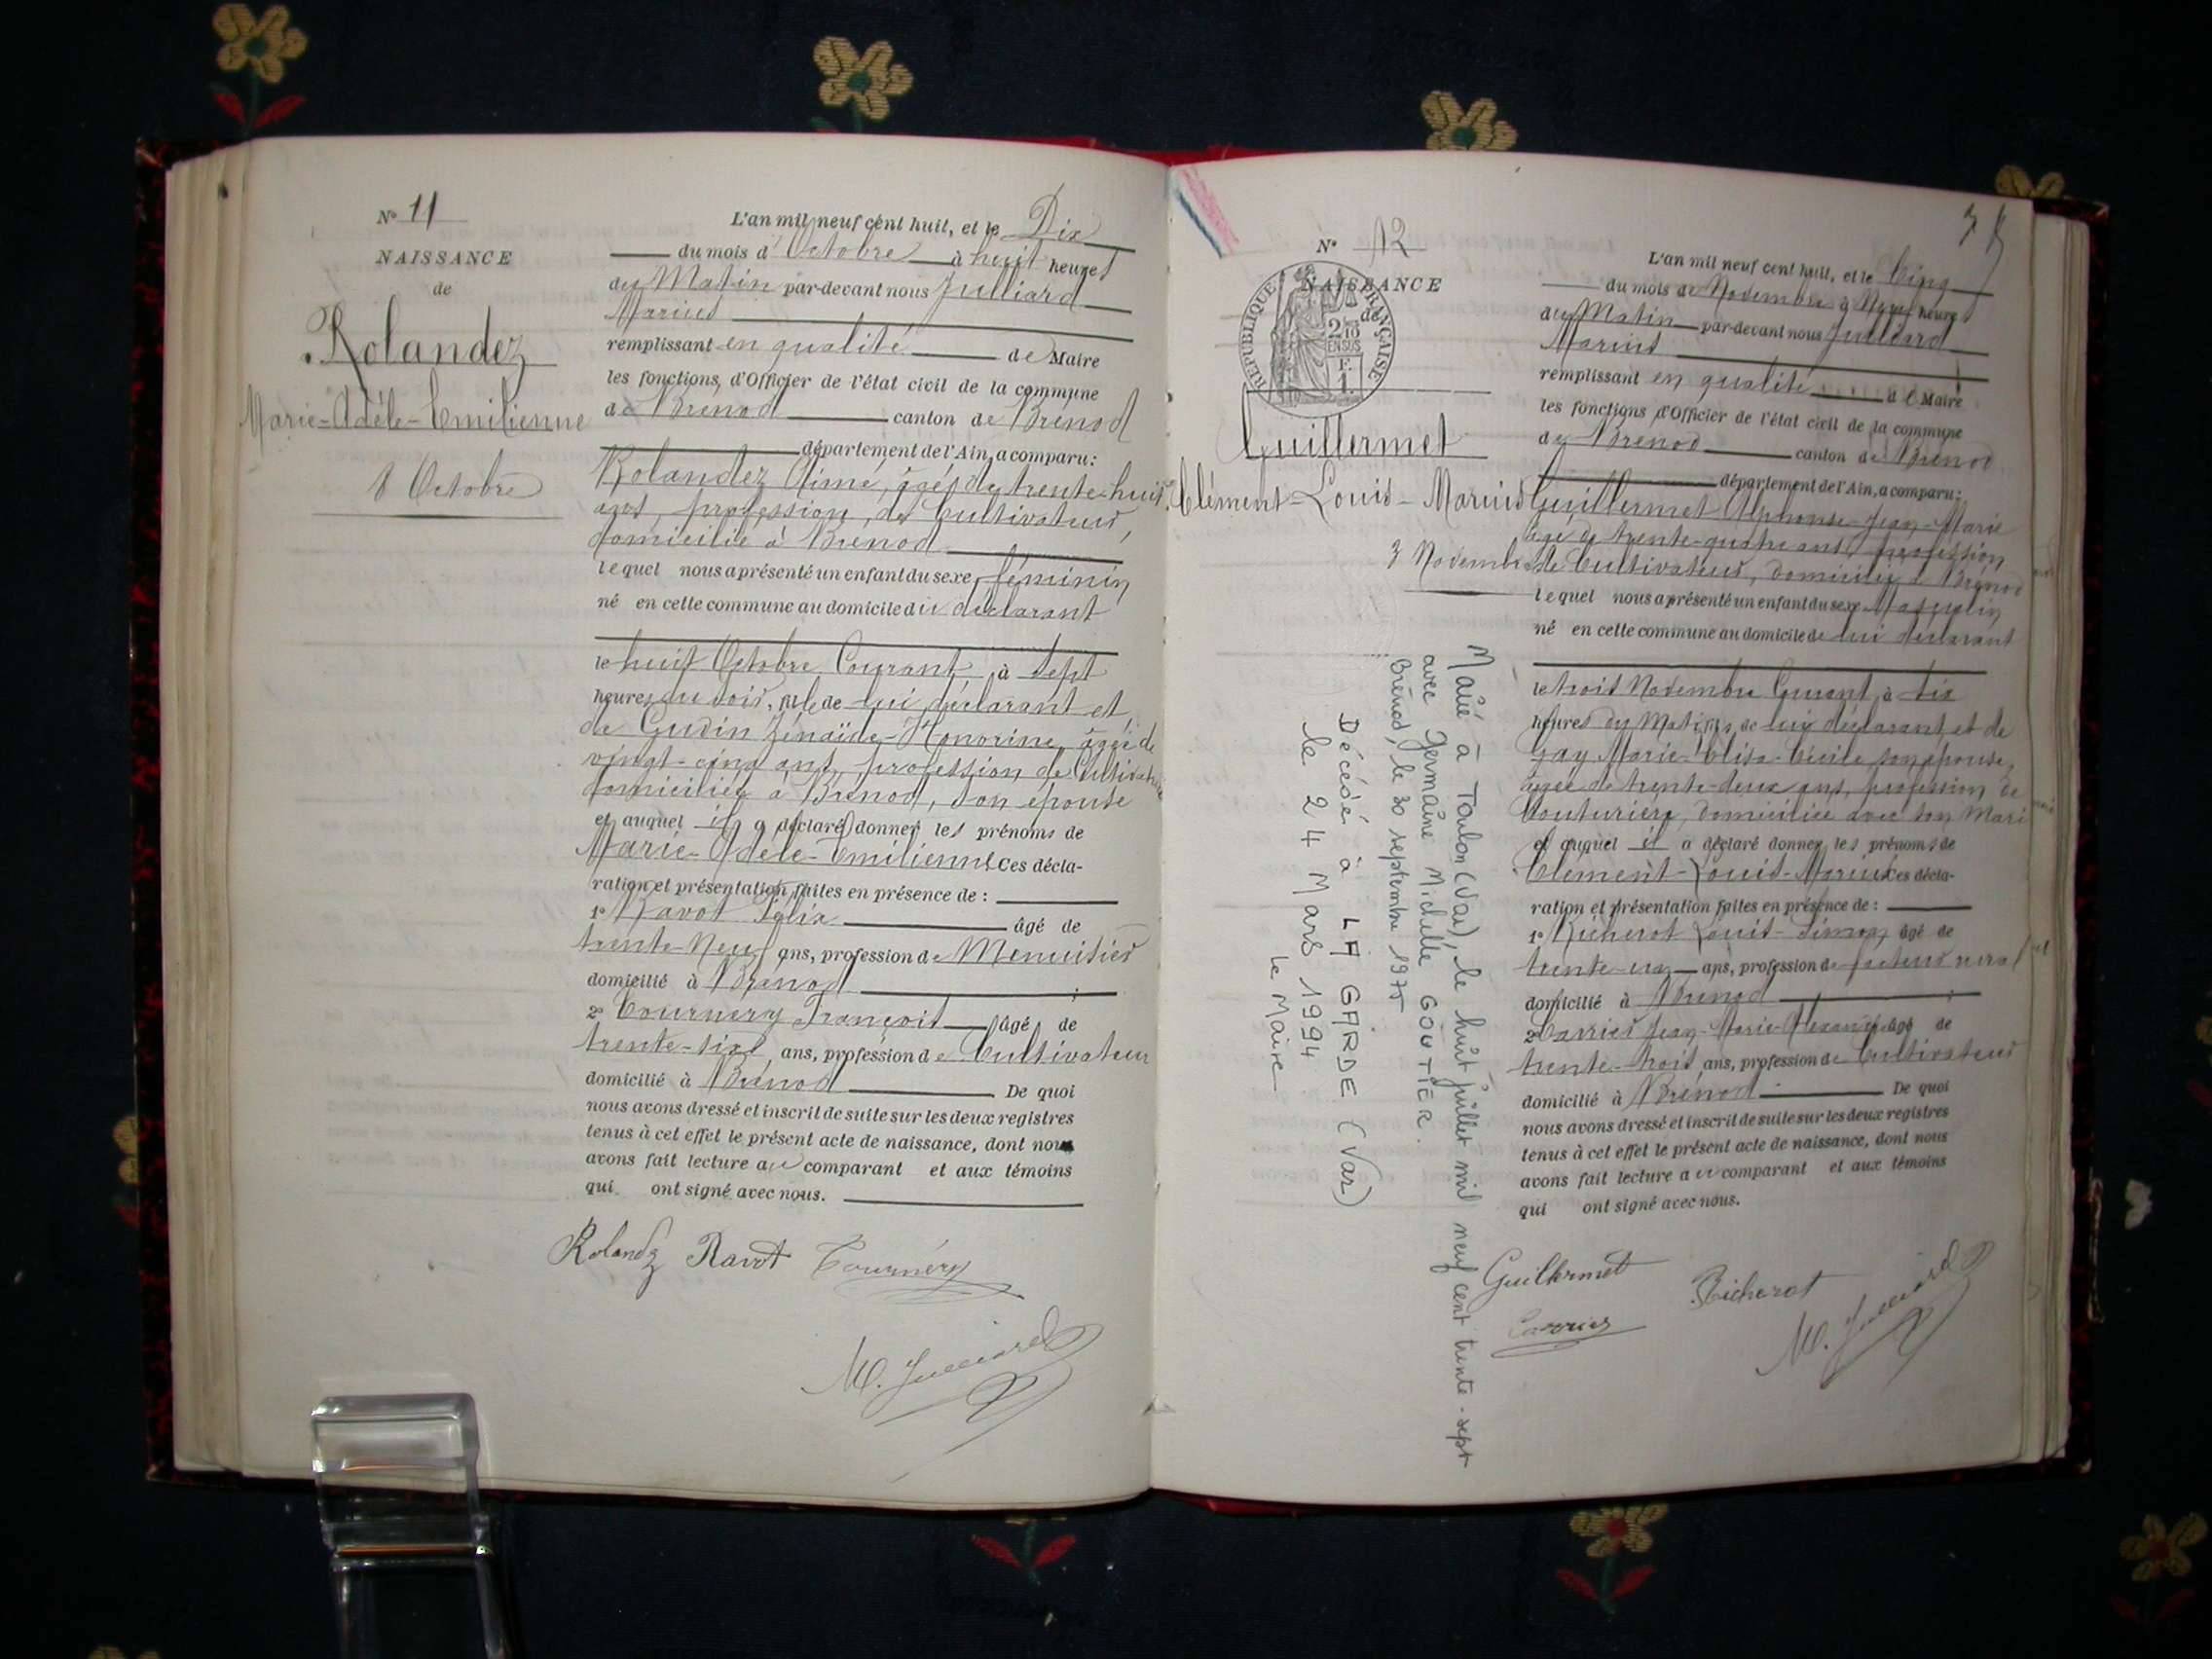 Nº 11
NAISSANCE
de
Rolandez
Marie-Adèle-Emilienne
8 Octobre
L'an mil neuf cent huit, et le Dix
du mois d'Octobre à huit heures
du Matin par-devant nous Julliard
Marius
remplissant en qualité de Maire
les fonctions d'Officier de l'état civil de la commune
de Brénod canton de Brénod
département de l'Ain, a comparu:
Rolandez Aimé, âgé de trente-huit
ans, profession de Cultivateur,
domicilié à Brénod
lequel nous a présenté un enfant du sexe féminin
né en cette commune au domicile du déclarant
le huit Octobre Courant à sept
heures du soir, fille de lui déclarant et
de Gudin Zénaïde-Honorine, âgée de
vingt-cinq ans, profession de Cultivatrice
domiciliée à Brénod, son épouse
et auquel il a déclaré donner les prénoms de
Marie-Adèle-Emilienne Ces décla-
ration et présentation faites en présence de :
1º Ravot Félix âgé de
trente-neuf ans, profession de Menuisier
domicilié à Brénod ;
2º Tournery François âgé de
trente-six ans, profession de Cultivateur
domicilié à Brénod De quoi
nous avons dressé et inscrit de suite sur les deux registres
tenus à cet effet le présent acte de naissance, dont nous
avons fait lecture au comparant et aux témoins
qui ont signé avec nous.
Rolandez Ravot Tournéry
M. Julliard
Nº 12
NAISSANCE
de
REPUBLIQUE FRANÇAISE
2/10
EN SUS
F.
1.
Guillermet
Clément-Louis-Marius
3 Novembre
L'an mil neuf cent huit, et le Cinq
du mois de Novembre à Neuf heures
du Matin par-devant nous Julliard
Marius
remplissant en qualité de Maire
les fonctions d'Officier de l'état civil de la commune
de Brénod canton de Brénod
département de l'Ain, a comparu:
Guillermet Alphonse-Jean-Marie
âgé de trente-quatre ans, profession
de Cultivateur, domicilié à Brénod
lequel nous a présenté un enfant du sexe Masculin
né en cette commune au domicile de lui déclarant
le trois Novembre Courant, à six
heures du Matin, fils de lui déclarant et de
Gay Marie-Elisa-Cécile son épouse,
âgée de trente-deux ans, profession de
Couturière, domiciliée avec son Mari
et auquel il a déclaré donner les prénoms de
Clément-Louis-Marius Ces décla-
ration et présentation faites en présence de :
1º Richerot Louis-Simon, âgé de
trente-un ans, profession de facteur rural
domicilié à Brénod ;
2º Carrier Jean-Marie-Alexandre âgé de
trente-trois ans, profession de Cultivateur
domicilié à Brénod De quoi
nous avons dressé et inscrit de suite sur les deux registres
tenus à cet effet le présent acte de naissance, dont nous
avons fait lecture au comparant et aux témoins
qui ont signé avec nous.
Guillermet Richerot
Carrier M. Julliard
Marié à Toulon (Var), le huit juillet mil neuf cent trente-sept
avec Germaine Michelle GOUTIER.
Brénod, le 30 septembre 1975
Décédé à LA GARDE (Var)
le 24 Mars 1994
Le Maire